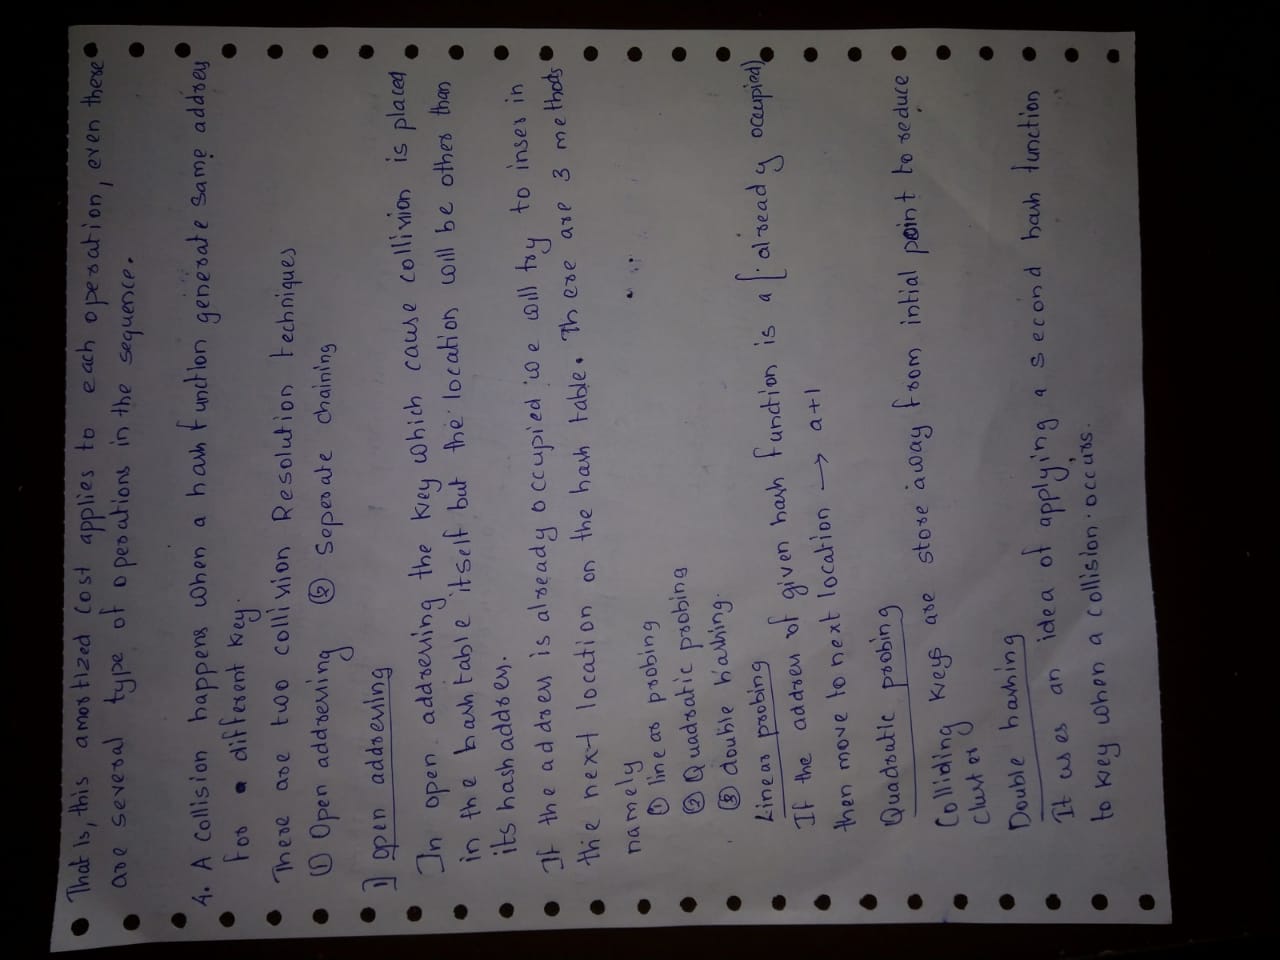 That is, this amortized cost applies to each operation, even there
are several type of operations in the sequence.
4. A collision happens when a hash function generate same address
for a different key.
There are two collision Resolution techniques
① Open addressing ② Seperate chaining
1] open addressing
In open addressing the key which cause collision is placed
in the hash table itself but the location will be other than
its hash address.
If the address is already occupied we will try to inser in
the next location on the hash table. There are 3 methods
namely
① linear probing
② Quadratic probing
③ double hashing.
Linear probing
If the address of given hash function is a [already occupied]
then move to next location → a+1
Quadratic probing
Colliding keys are store away from intial point to reduce
cluster
Double hashing
It uses an idea of applying a second hash function
to key when a collision occurs.